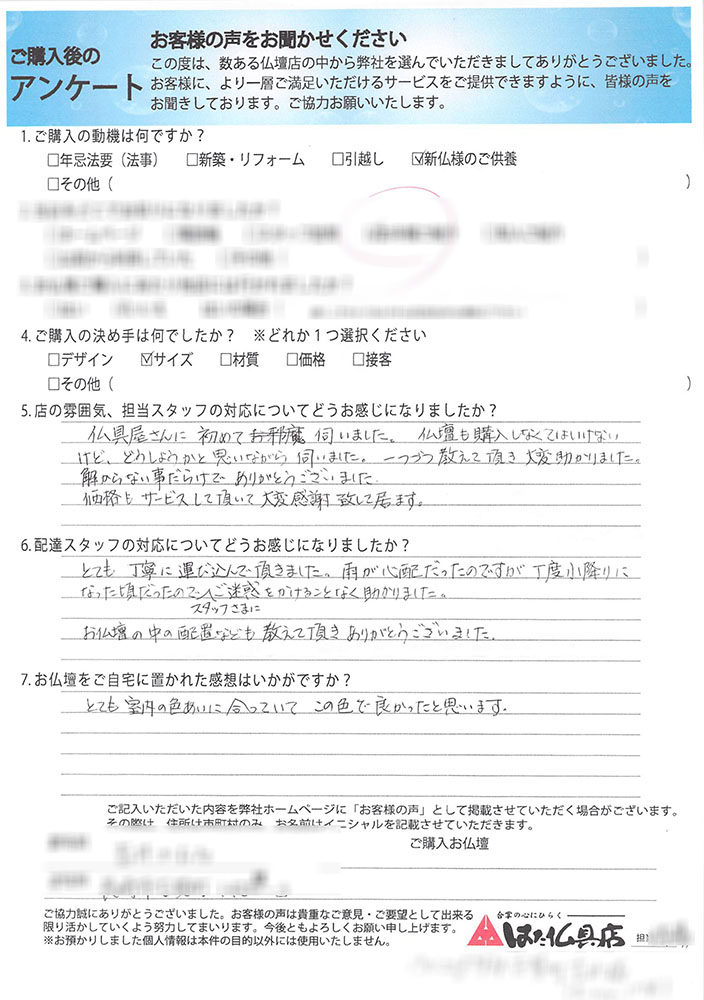 ご購入後の
アンケート
お客様の声をお聞かせください
この度は、数ある仏壇店の中から弊社を選んでいただきましてありがとうございました。
お客様に、より一層ご満足いただけるサービスをご提供できますように、皆様の声を
お聞きしております。ご協力お願いいたします。
1.ご購入の動機は何ですか？
□年忌法要（法事） □新築・リフォーム □引越し ☑新仏様のご供養
□その他（ ）
4.ご購入の決め手は何でしたか？ ※どれか１つ選択ください
□デザイン ☑サイズ □材質 □価格 □接客
□その他（ ）
5.店の雰囲気、担当スタッフの対応についてどうお感じになりましたか？
仏具屋さんに 初めてお邪魔 伺いました。 仏壇も購入しなくてはいけない
けど、どうしようかと思いながら 伺いました。一つづつ教えて頂き大変助かりました。
解からない事だらけで ありがとうございました.
価格もサービスして頂いて大変感謝致して居ます。
6.配達スタッフの対応についてどうお感じになりましたか？
とても 丁寧に運び込んで頂きました。雨が心配だったのですが丁度小降りに
なった頃だったのでご迷惑をかけることなく助かりました。
スタッフさまに
お仏壇の中の配置なども 教えて頂き ありがとうございました.
7.お仏壇をご自宅に置かれた感想はいかがですか？
とても 室内の色あいに 合っていて この色で良かったと思います.
ご記入いただいた内容を弊社ホームページに「お客様の声」として掲載させていただく場合がございます。
その際は、住所は市町村のみ、お名前はイニシャルを記載させていただきます。
ご購入お仏壇
ご協力誠にありがとうございました。お客様の声は貴重なご意見・ご要望として出来る
限り活かしていくよう努力してまいります。今後ともよろしくお願い申し上げます。
※お預かりしました個人情報は本件の目的以外には使用いたしません。
合掌の心にひらく
はた仏具店
担